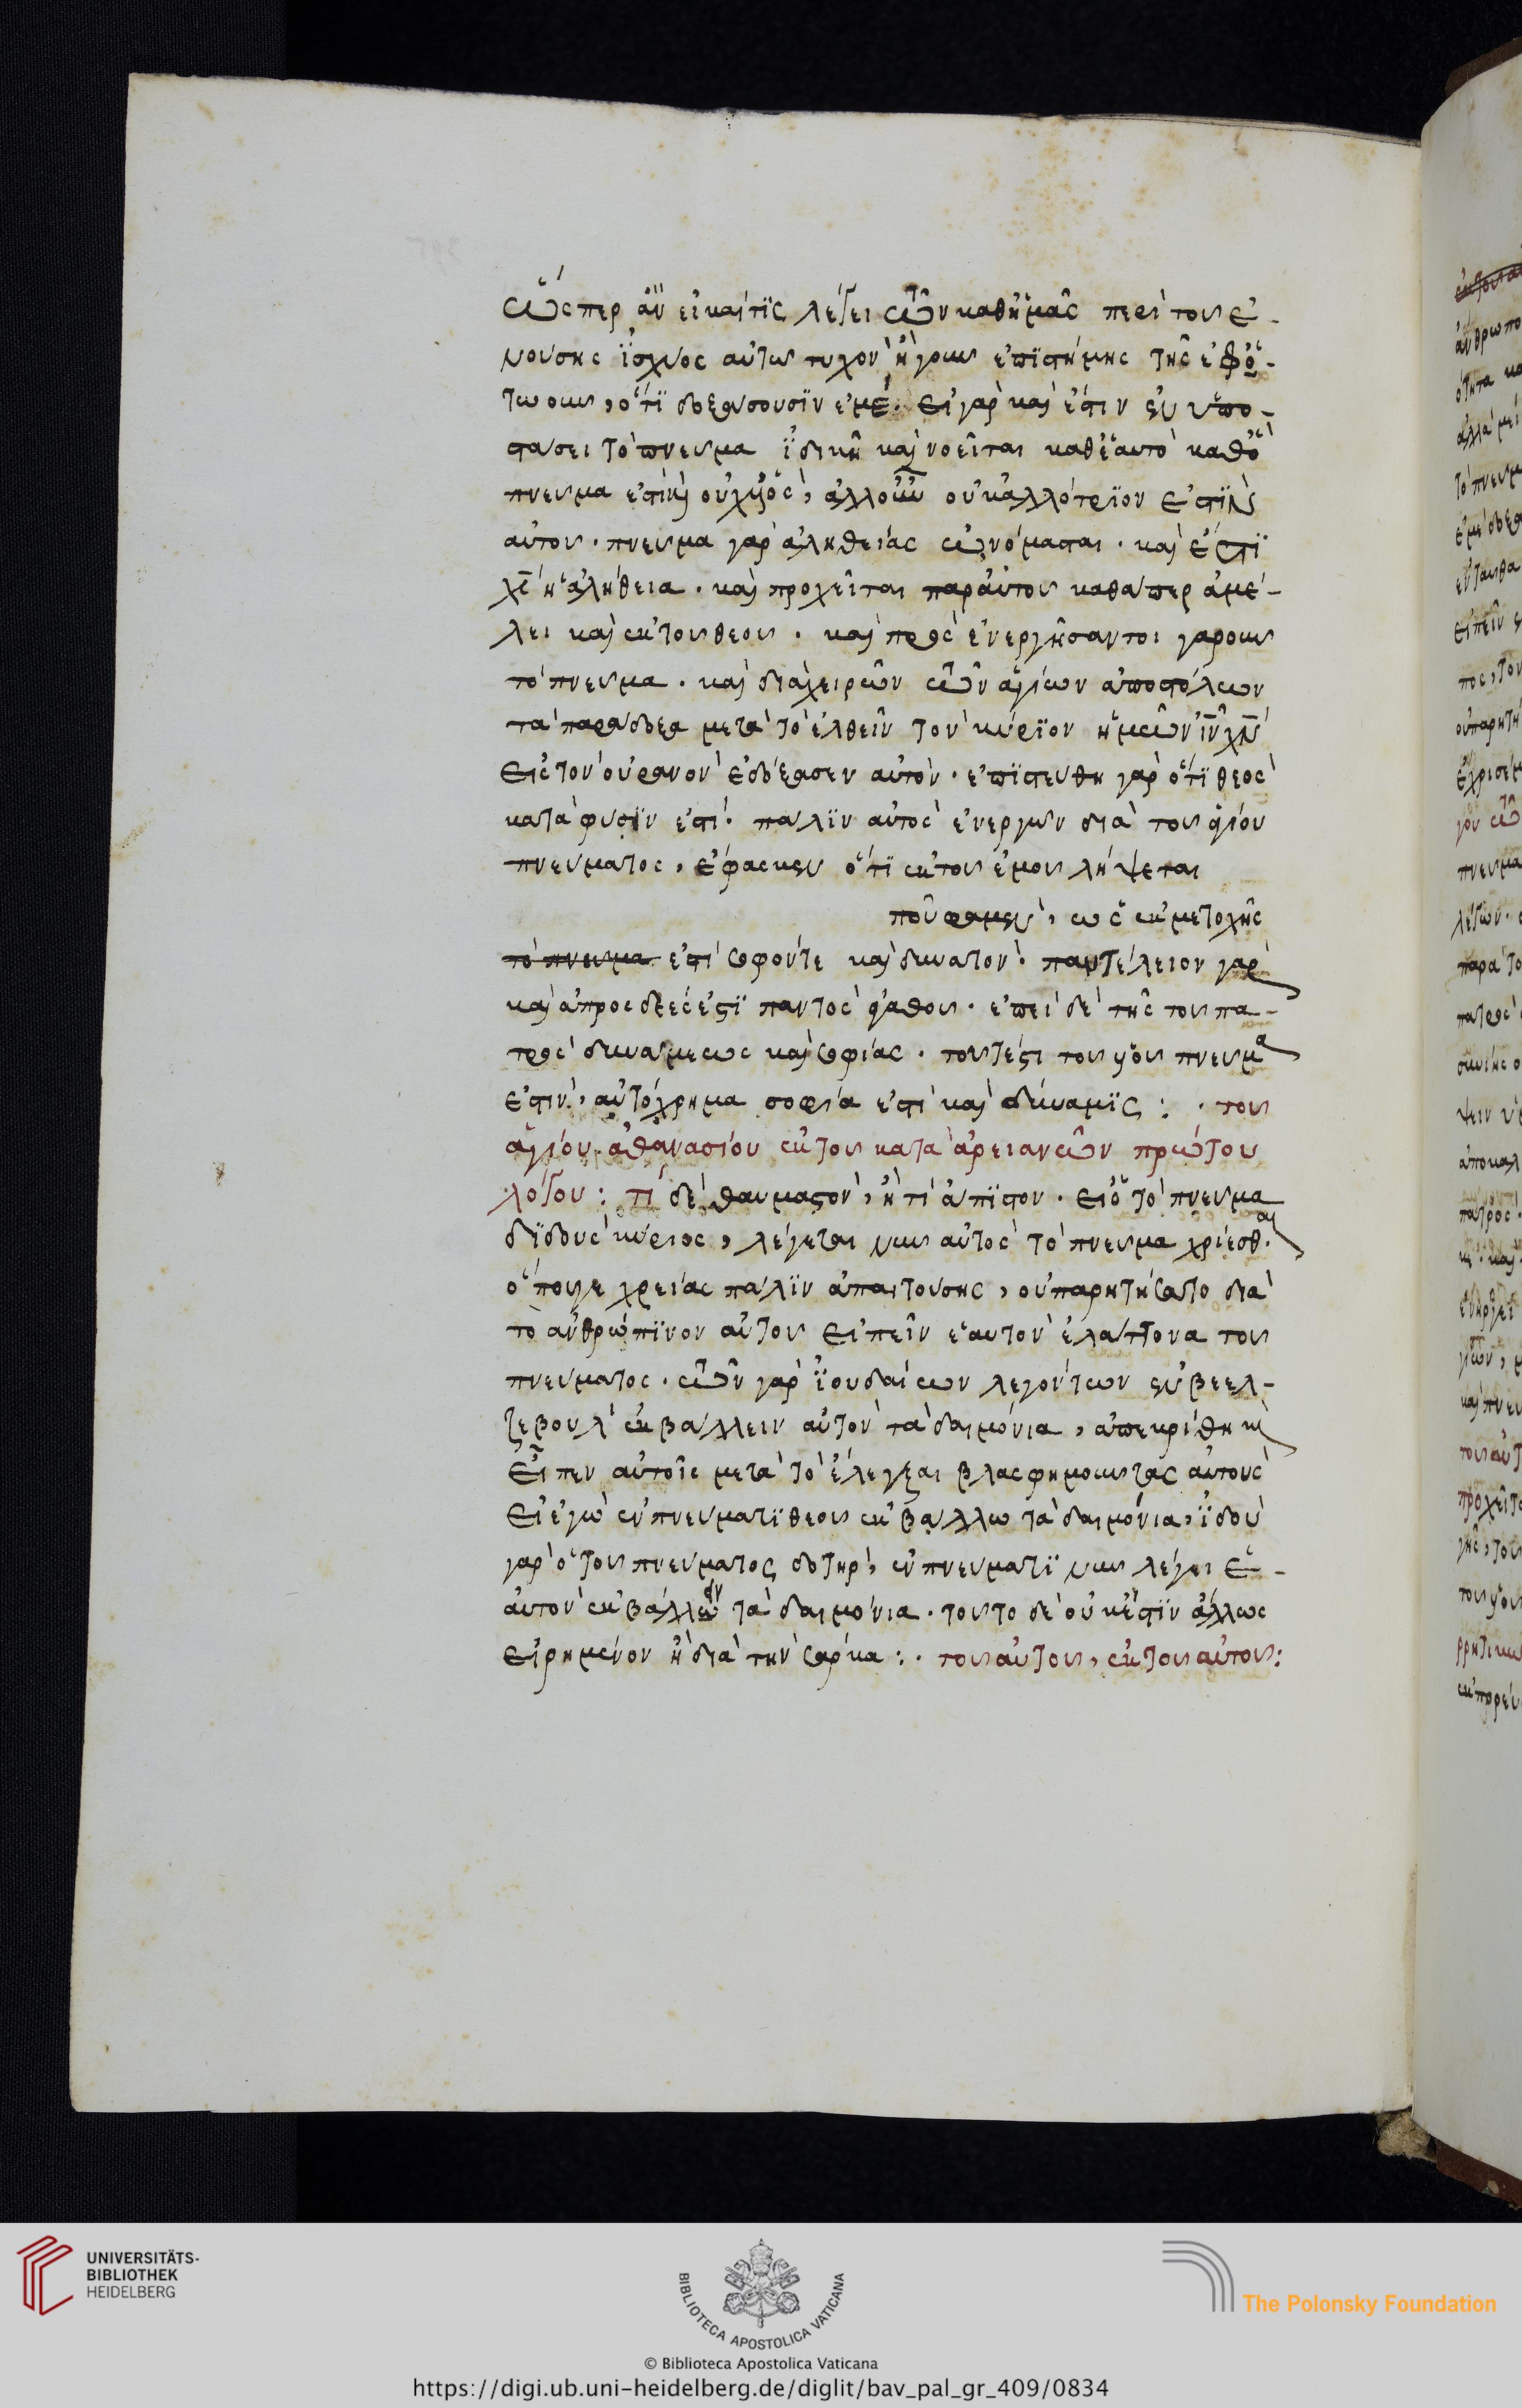 ὥσπερ ἂν εἰ καί τις λέγει τῶν καθ' ἡμᾶς περὶ τοῦ ἐ-
νούσης ἰσχύος αὐτῶ τυχὸν ἤγουν ἐπιστήμης τῆς ἐφ' ὁ-
τωοῦν, ὅτι δοξάσουσιν ἐμέ. εἰ γὰρ καὶ ἔστιν ἐν ὑπο-
στάσει τὸ πνεῦμα ἰδικῆ καὶ νοεῖται καθ' ἑαυτὸ καθὸ
πνεῦμα ἐστὶ καὶ οὐχ υἱὸς, ἀλλ' οὖν οὐκ ἀλλότριον ἐστὶν
αὐτοῦ. πνεῦμα γὰρ ἀληθείας ὠνόμασται. καὶ ἔστι
χς ἡ ἀλήθεια. καὶ προχεῖται παρ' αὐτοῦ καθάπερ ἀμέ-
λει καὶ ἐκ τοῦ θεοῦ. καὶ πρὸς ἐνεργῆσαν τοιγαροῦν
τὸ πνεῦμα. καὶ διὰ χειρῶν τῶν ἁγίων ἀποστόλων
τὰ παράδοξα μετὰ τὸ ἐλθεῖν τὸν κύριον ἡμῶν ιν χν
εἰς τὸν οὐρανὸν ἐδόξασεν αὐτόν. ἐπιστεύθη γὰρ ὅτι θεὸς
κατὰ φύσιν ἐστί. πάλιν αὐτὸς ἐνεργῶν διὰ τοῦ ἁγίου
πνεύματος, ἔφασκεν ὅτι ἐκ τοῦ ἐμοῦ λήψεται
ποῦ φαμεν, ὡς ἐκ μετοχῆς
τὸ πνεῦμα ἐστὶ σοφόν τε καὶ δυνατόν. παντέλειον γὰρ
καὶ ἀπροσδεές ἐστι παντὸς ἀγαθοῦ. ἐπεὶ δὲ τῆς τοῦ πα-
τρὸς δυνάμεως καὶ σοφίας. τουτέστι τοῦ υἱοῦ πνεῦμα
ἐστιν, αὐτόχρημα σοφία ἐστὶ καὶ δύναμις: . τοῦ
ἁγίου ἀθανασίου ἐκ τοῦ κατὰ ἀρειανῶν πρώτου
λόγου: τί δὲ θαυμαστὸν, ἢ τί ἄπιστον. εἰ ὁ τὸ πνεῦμα
διδοὺς κύριος, λέγεται νῦν αὐτὸς τὸ πνεῦμα χρίεσθαι.
ὅπουγε χρείας πάλιν ἀπαιτούσης, οὐ παρητήσατο διὰ
τὸ ἀνθρώπινον αὐτοῦ εἰπεῖν ἑαυτὸν ἐλάττονα τοῦ
πνεύματος. τῶν γὰρ ἰουδαίων λεγόντων ἐν βεελ-
ζεβοὺλ ἐκβάλλειν αὐτὸν τὰ δαιμόνια, ἀπεκρίθη καὶ
εἶπεν αὐτοῖς μετὰ τὸ ἐλέγξαι βλασφημοῦντας αὐτοὺς
εἰ ἐγὼ ἐν πνεύματι θεοῦ ἐκβάλλω τὰ δαιμόνια, ἰδοὺ
γὰρ ὁ τοῦ πνεύματος δοτὴρ, ἐν πνεύματι νῦν λέγει ἑ-
αυτὸν ἐκβάλλειν τὰ δαιμόνια. τοῦτο δὲ οὐκ ἔστιν ἄλλως
εἰρημένον ἢ διὰ τὴν σάρκα: . τοῦ αὐτοῦ, ἐκ τοῦ αὐτοῦ:
UNIVERSITÄTS-
BIBLIOTHEK
HEIDELBERG
BIBLIOTECA APOSTOLICA VATICANA
The Polonsky Foundation
© Biblioteca Apostolica Vaticana
https://digi.ub.uni-heidelberg.de/diglit/bav_pal_gr_409/0834